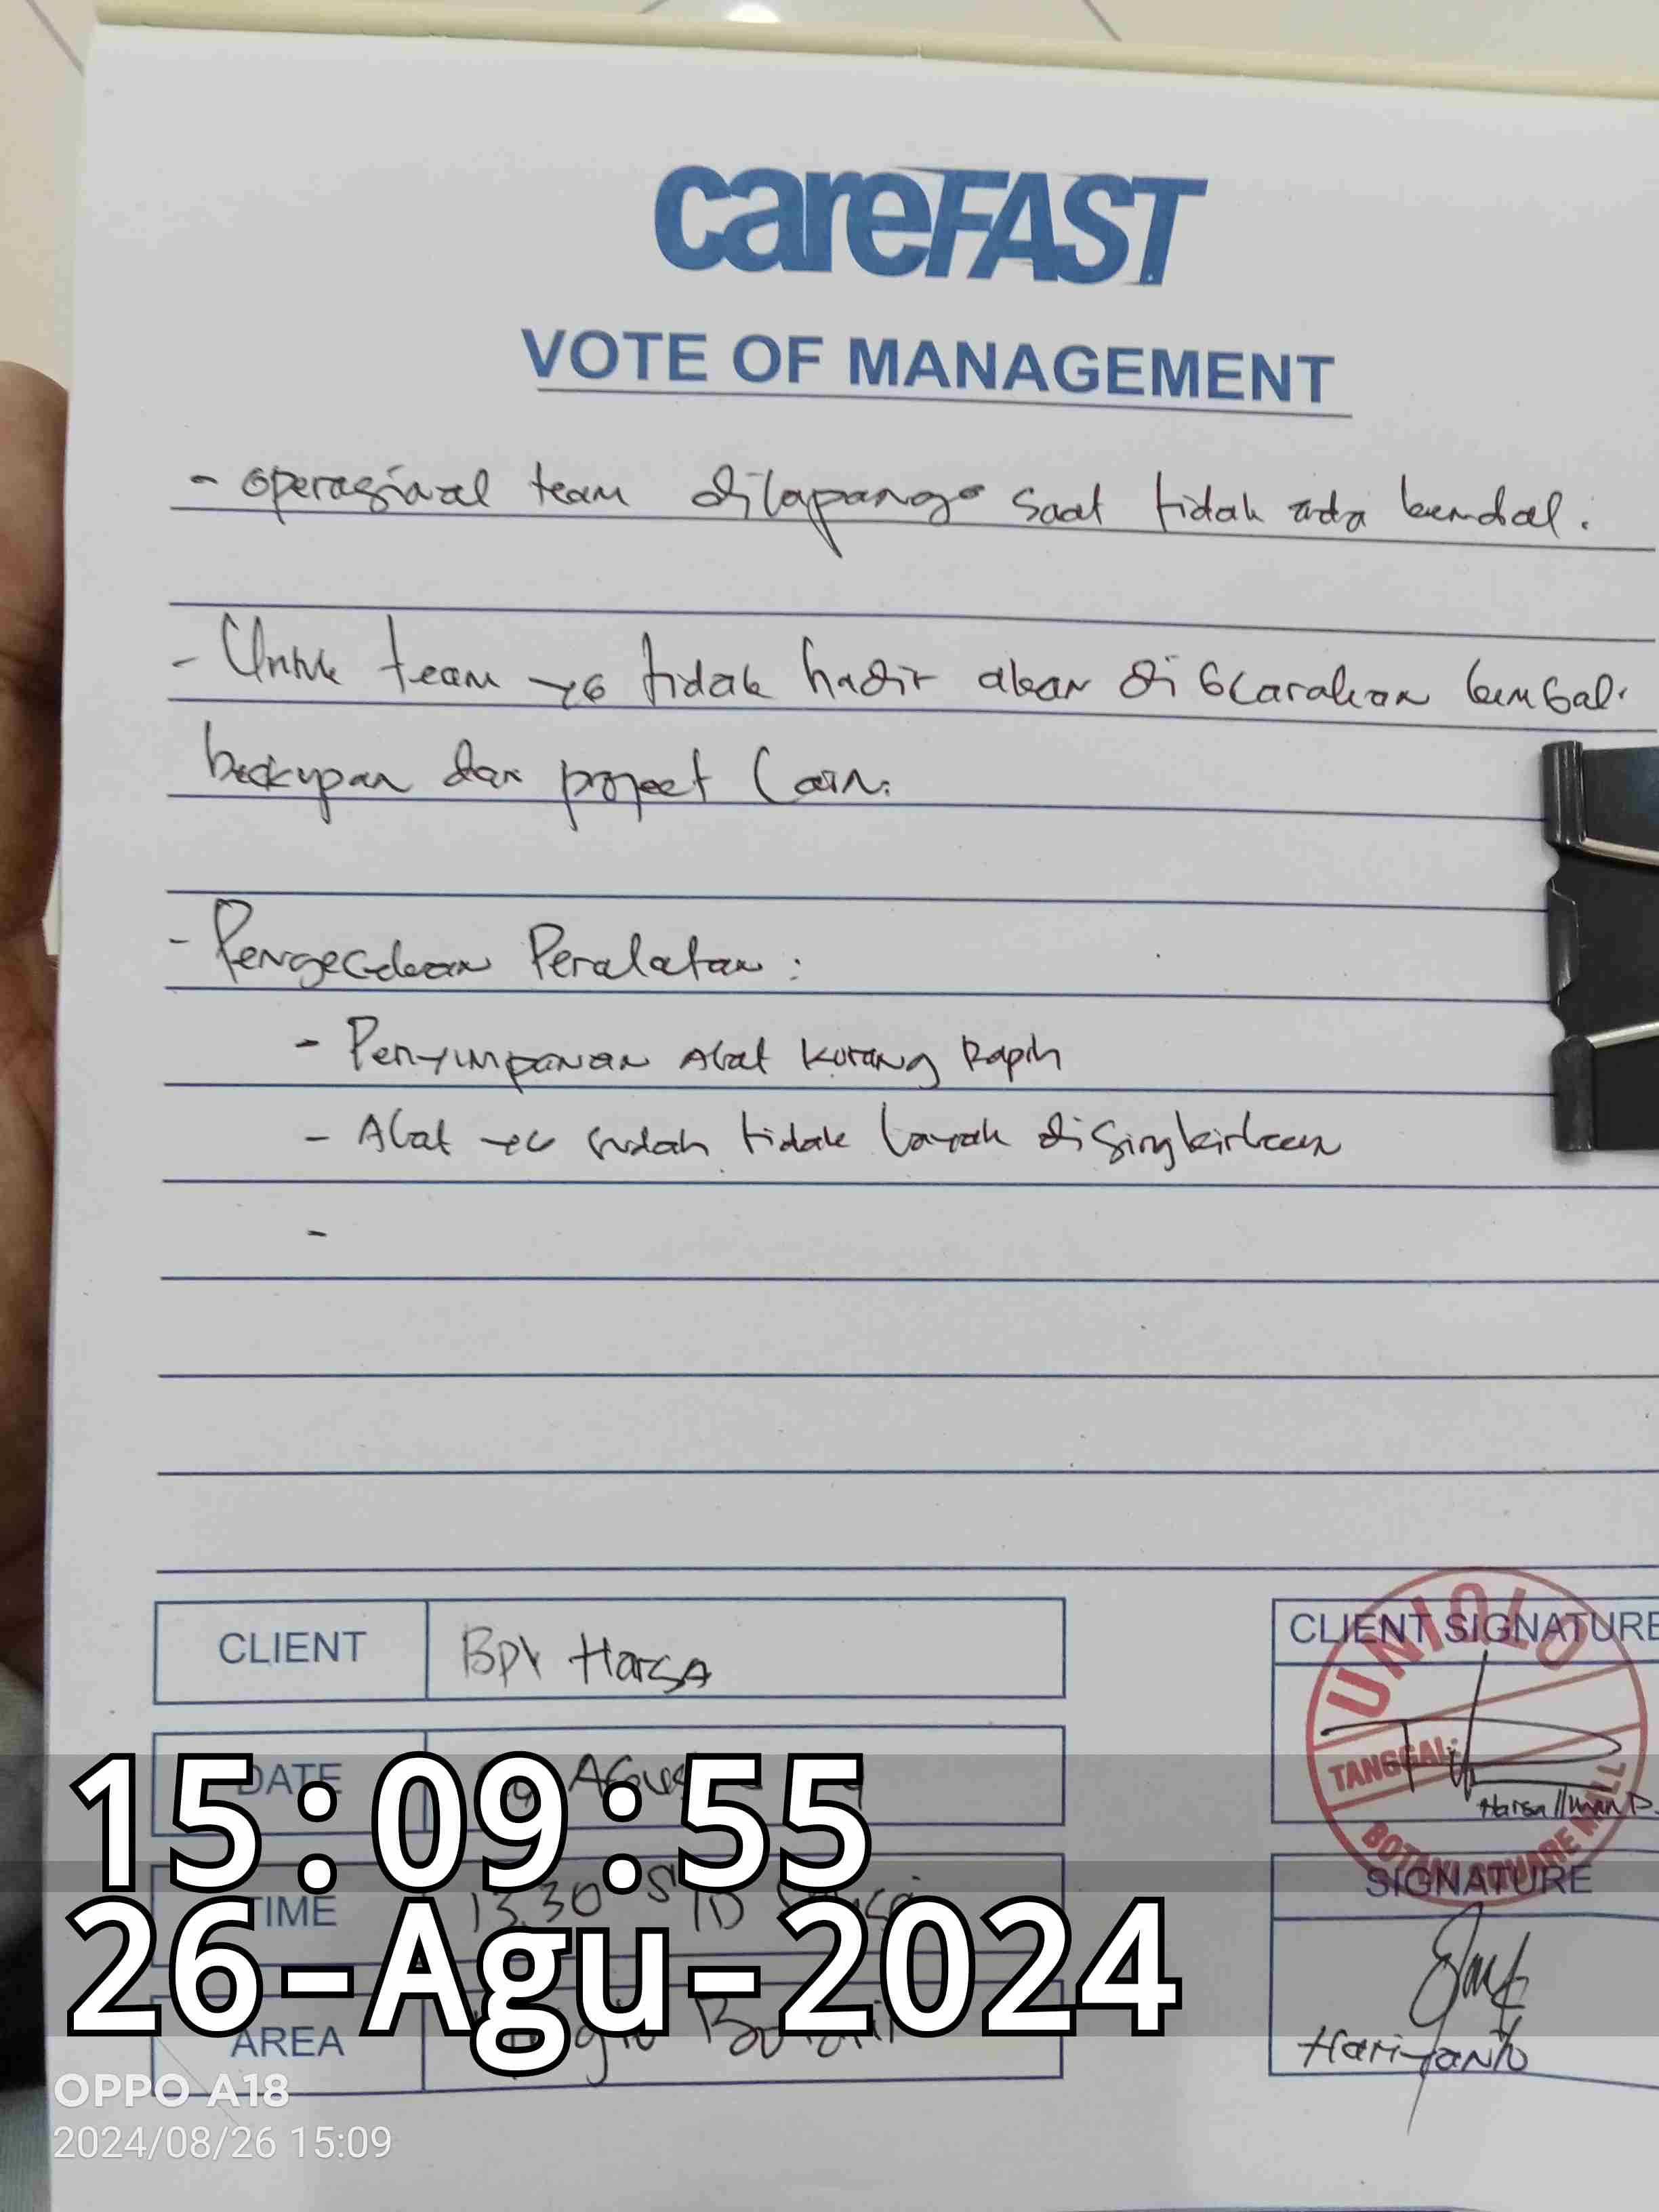 careFAST
VOTE OF MANAGEMENT
- operasional team dilapang saat tidak ada kendal.
- Untuk team yg tidak hadir akan di bicarakan kembali
backupan dari project lain.
- Pengecekan Peralatan :
- Penyimpanan Alat kurang Rapih
- Alat yg sudah tidak layak disingkirkan
-
CLIENT Bpk Harsa
CLIENT SIGNATURE
UNIQLO
TANGGAL:
BOTANI SQUARE MALL
Harsa
DATE
TIME 13.30 S/D
AREA
SIGNATURE
Hariyanto
15:09:55
26-Agu-2024
OPPO A18
2024/08/26 15:09